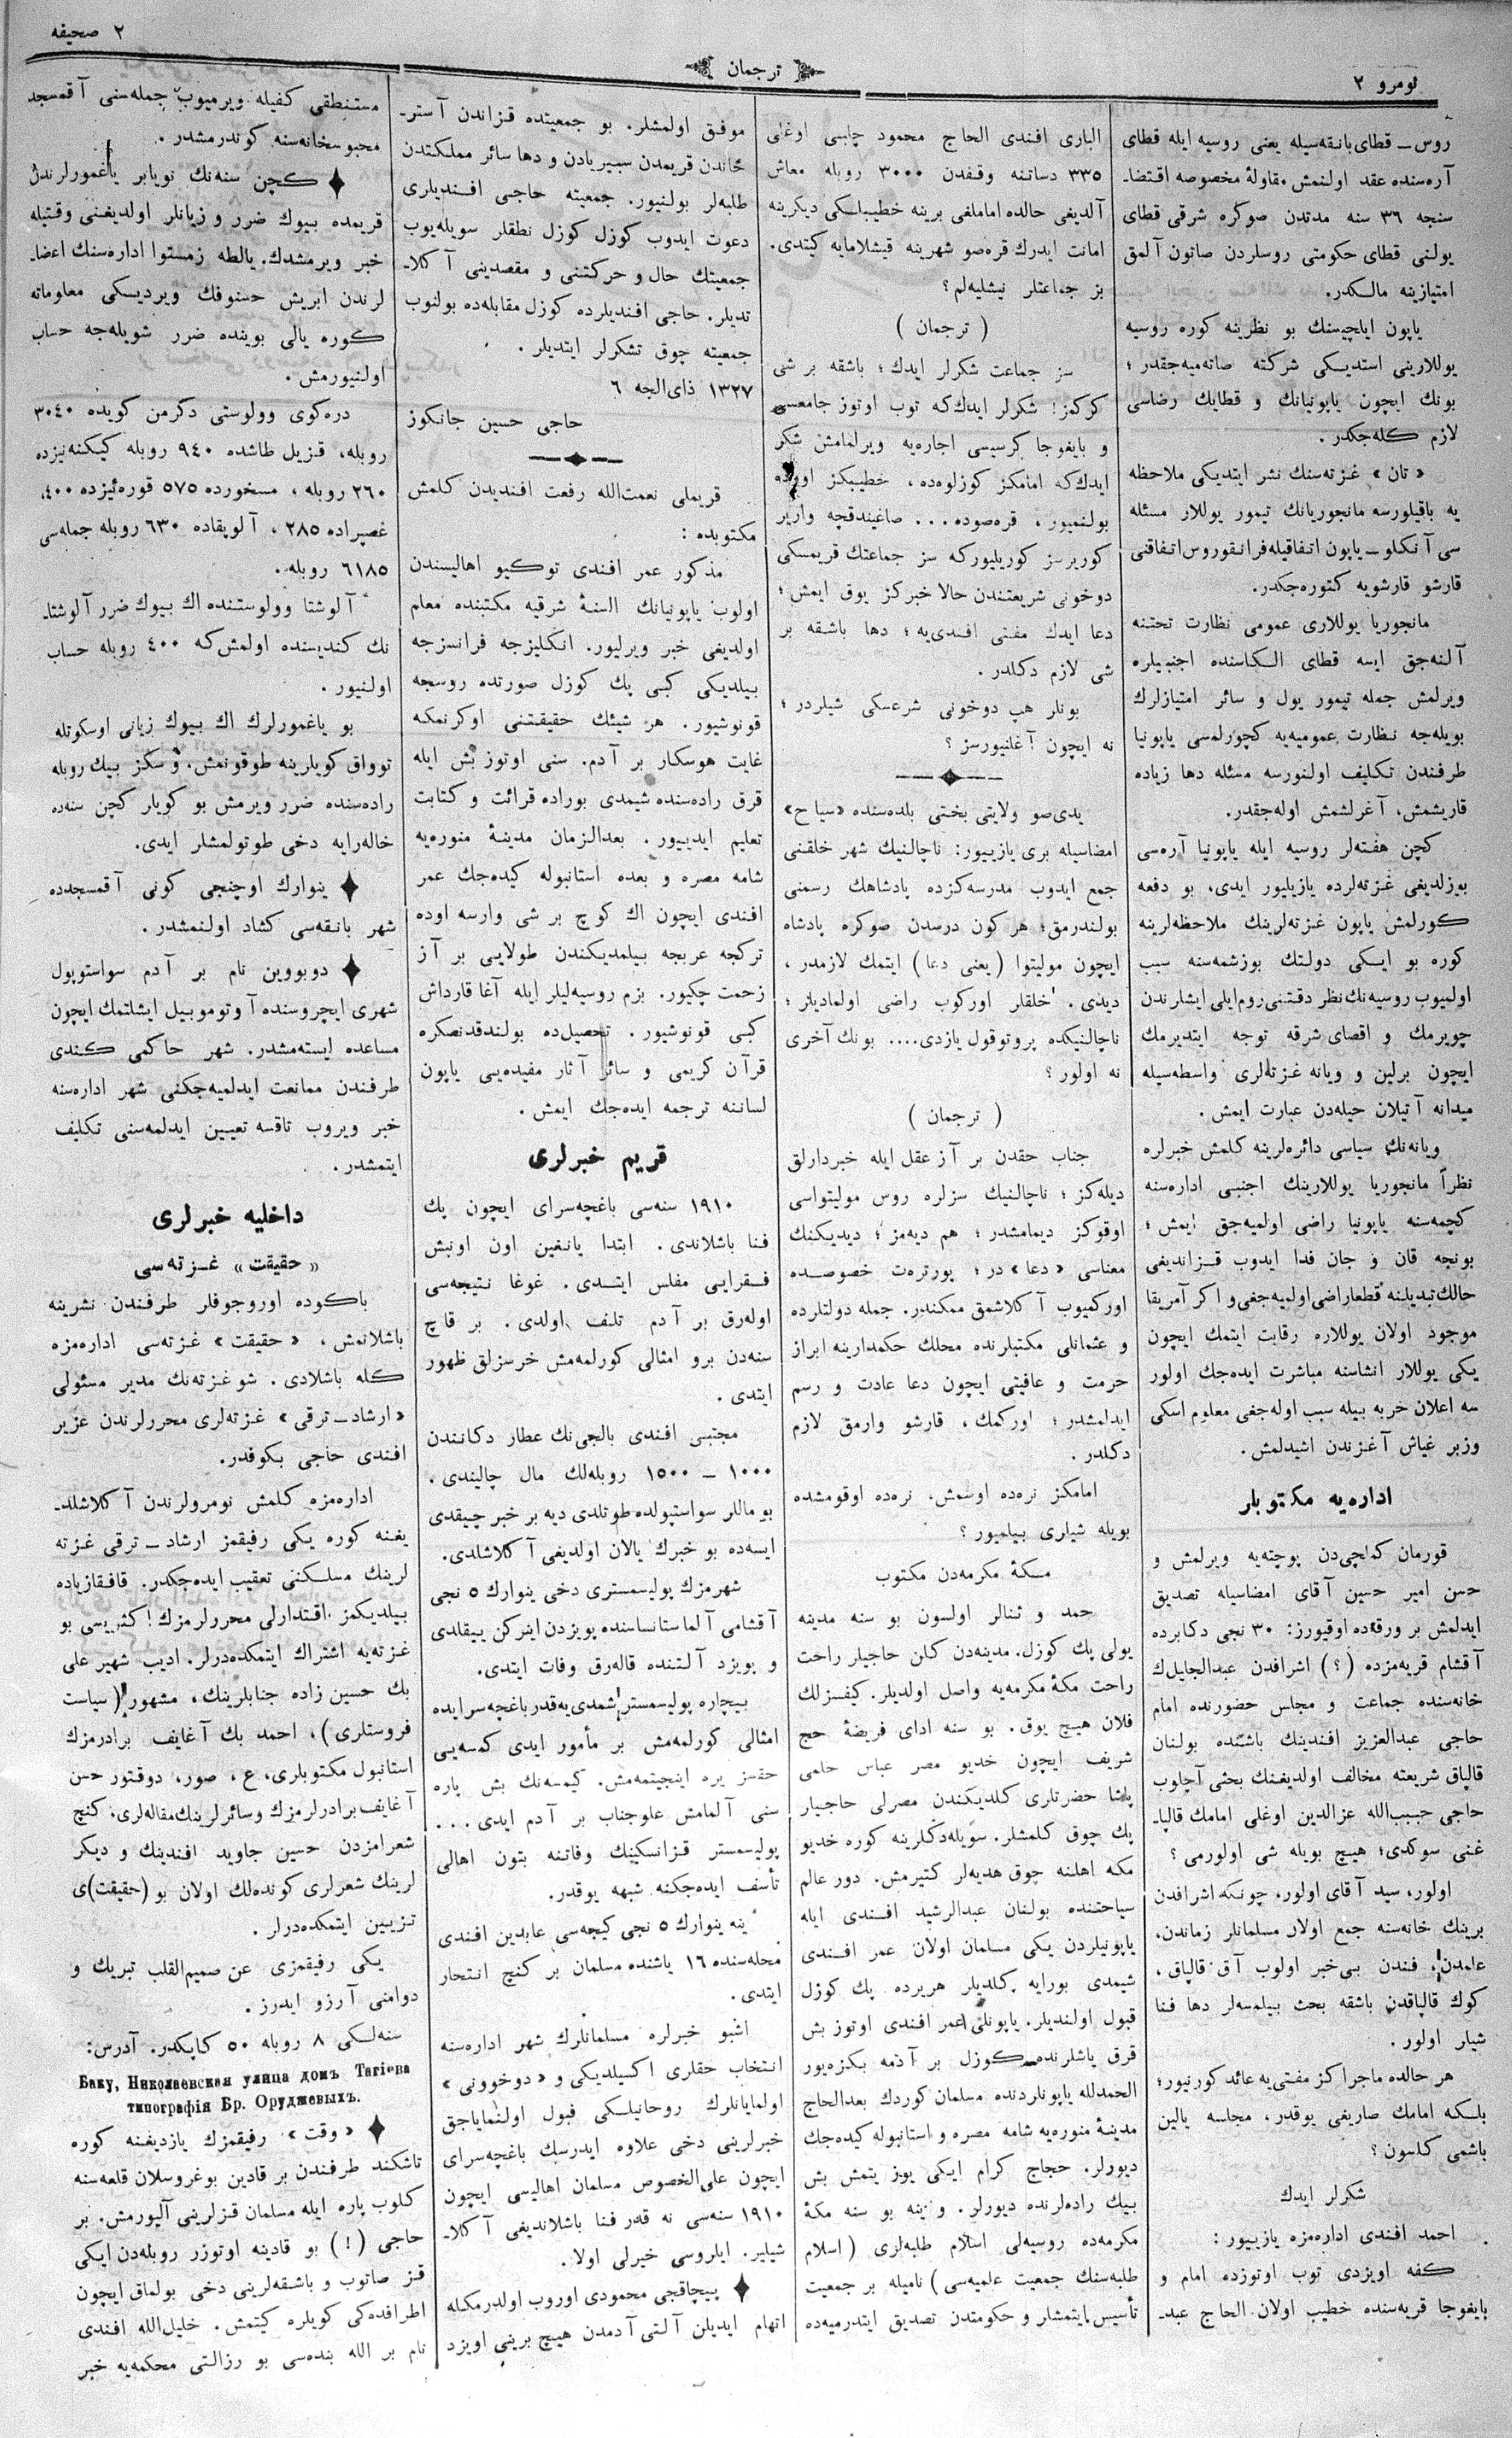 نومرو ٢
ترجمان
٢ صحيفه
روس ــ قطاى بانقه‌سيله يعنى روسيه ايله قطاى
آره‌سنده عقد اولنمش مقاولهٔ مخصوصه اقتضا-
سنجه ٣٦ سنه مدتدن صوڭره شرقى قطاى
يولنى قطاى حكومتى روسلردن صاتون آلمق
امتيازينه مالكدر.
ياپون ايلچيسنك بو نظرينه كوره روسيه
يوللارينى استديكى شركته صاته‌ميه‌جقدر ؛
بونك ايچون ياپونيانك و قطايك رضاسى
لازم كله‌جكدر .
« تان » غزته‌سنك نشر ايتديكى ملاحظه
يه باقيلورسه مانجوريانك تيمور يوللار مسئله
سى آنكلو ــ ياپون اتفاقيله فرانقوروس اتفاقنى
قارشو قارشويه كتوره‌جكدر.
مانجوريا يوللارى عمومى نظارت تحتنه
آلنه‌جق ايسه قطاى الكاسنده اجنبيلره
ويرلمش جمله تيمور يول و سائر امتيازلرك
بويله‌جه نظارت عموميه‌يه كچورلمسى ياپونيا
طرفندن تكليف اولنورسه مسئله دها زياده
قاريشمش، آغرلشمش اوله‌جقدر.
كچن هفته‌لر روسيه ايله ياپونيا آره‌سى
بوزلديغى غزته‌لرده يازيليور ايدى، بو دفعه
كورلمش ياپون غزته‌لرينك ملاحظه‌لرينه
كوره بو ايكى دولتك بوزشمه‌سنه سبب
اولميوب روسيه‌نك نظر دقتنى روم‌ايلى ايشلرندن
چويرمك و اقصاى شرقه توجه ايتديرمك
ايچون برلين و ويانه غزته‌لرى واسطه‌سيله
ميدانه آتيلان حيله‌دن عبارت ايمش .
ويانه‌نك سياسى دائره‌لرينه كلمش خبرلره
نظراً مانجوريا يوللارينك اجنبى اداره‌سنه
كچمه‌سنه ياپونيا راضى اولميه‌جق ايمش ؛
بونجه قان و جان فدا ايدوب قزانديغى
حالك تبديلنه قطعا راضى اولميه‌جغى و اكر آمريقا
موجود اولان يوللاره رقابت ايتمك ايچون
يكى يوللار انشاسنه مباشرت ايده‌جك اولور
سه اعلان حربه بيله سبب اوله‌جغى معلوم اسكى
وزير غياش آغزندن اشيدلمش .
اداره‌يه مكتوبلر
قورمان كه‌لچى‌دن پوچته‌يه ويرلمش و
حسن امير حسين آقاى امضاسيله تصديق
ايدلمش بر ورقه‌ده اوقيورز: ٣٠ نجى دكابرده
آقشام قريه‌مزده (؟) اشرافدن عبدالجليل‌ك
خانه‌سنده جماعت و مجلس حضورنده امام
حاجى عبدالعزيز افندينك باشنده بولنان
قالپاق شريعته مخالف اولديغنك بحثى آچلوب
حاجى حبيب‌الله عزالدين اوغلى امامك قالپا-
غنى سوكدى؛ هيچ بويله شى اولورمى ؟
اولور، سيد آقاى اولور، چونكه اشرافدن
برينك خانه‌سنه جمع اولان مسلمانلر زماندن،
عامدن، فندن بى‌خبر اولوب آق قالپاق ،
كوك قالپاقدن باشقه بحث بيلمسه‌لر دها فنا
شيلر اولور .
هر حالده ماجراكز مفتى‌يه عائد كورنيور؛
بلكه امامك صاريغى يوقدر، مجلسه يالين
باشمى كلسون ؟
شكرلر ايدك
احمد افندى اداره‌مزه يازييور :
كفه اويزدى توب اوتوزده امام و
بايغوجا قريه‌سنده خطيب اولان الحاج عبد-
البارى افندى الحاج محمود چلبى اوغلى
٣٣٥ دساتنه وقفدن ٣٠٠٠ روبله معاش
آلديغى حالده اماملغى برينه خطيبلكى ديكرينه
امانت ايدرك قره‌صو شهرينه قيشلامايه كيتدى.
بز جماعتلر نيشليه‌لم ؟
( ترجمان )
سز جماعت شكرلر ايدك ؛ باشقه بر شى
كركمز! شكرلر ايدك‌كه توب اوتوز جامعسى
و بايغوجا كرسيسى اجاره‌يه ويرلمامش شكر
ايدك‌كه امامكز كوزلوه‌ده ، خطيبكز
بولنميور ، قره‌صوده... صاغيندقچه واريز
كوريرسز كوريليوركه سز جماعتك قريمسكى
دوخونى شريعتندن حالا خبركز يوق ايمش ؛
دعا ايدك مفتى افندى‌يه ؛ دها باشقه بر
شى لازم دكلدر .
بونلر هپ دوخونى شرعسكى شيلردر ؛
نه ايچون آغلنيورسز ؟
يدى‌صو ولايتى بختى بلده‌سنده «سياح»
امضاسيله برى يازييور: ناچالنيك شهر خلقنى
جمع ايدوب مدرسه‌كزده پادشاهك رسمنى
بولندرمق؛ هر كون درسدن صوكره پادشاه
ايچون موليتوا (يعنى دعا) ايتمك لازمدر ،
ديدى . خلقلر اوركوب راضى اولماديلر ؛
ناچالنيكده پروتوقول يازدى.... بونك آخرى
نه اولور ؟
( ترجمان )
جناب حقدن بر آز عقل ايله خبردارلق
ديله‌كز ؛ ناچالنيك سزلره روس موليتواسى
اوقوكز ديمامشدر ؛ هم ديه‌مز ؛ ديديكنك
معناسى « دعا » در ؛ پورتره‌ت خصوصده
اوركميوب آكلاشمق ممكندر. جمله دولتلرده
و عثمانلى مكتبلرنده محلك حكمدارينه ابراز
حرمت و عافيتى ايچون دعا عادت و رسم
ايدلمشدر ؛ اوركمك، قارشو وارمق لازم
دكلدر .
امامكز نره‌ده اوسمش، نره‌ده اوقومشده
بويله شيلرى بيلميور ؟
مكهٔ مكرمه‌دن مكتوب
حمد و ثنالر اولسون بو سنه مدينه
يولى پك كوزل. مدينه‌دن كلن حاجيلر راحت
راحت مكهٔ مكرمه‌يه واصل اولديلر. كيفسزلك
فلان هيچ يوق. بو سنه اداى فريضهٔ حج
شريف ايچون خديو مصر عباس حلمى
پاشا حضرتلرى كلديكندن مصرلى حاجيلر
پك چوق كلمشلر. سويله‌دكلرينه كوره خديو
مكه اهلنه چوق هديه‌لر كتيرمش. دور عالم
سياحتنده بولنان عبدالرشيد افندى ايله
ياپونيلردن يكى مسلمان اولان عمر افندى
شيمدى بورايه كلديلر هريرده پك كوزل
قبول اولنديلر. ياپونلى عمر افندى اوتوز بش
قرق ياشلرنده كوزل بر آدمه بكزه‌يور
الحمدلله ياپونلردنده مسلمان كوردك بعدالحاج
مدينهٔ منوره‌يه شامه مصره و استانبوله كيده‌جك
ديورلر. حجاج كرام ايكى يوز يتمش بش
بيك راده‌لرنده ديورلر. و ينه بو سنه مكهٔ
مكرمه‌ده روسيه‌لى اسلام طلبه‌لرى (اسلام
طلبه‌سنك جمعيت علميه‌سى) ناميله بر جمعيت
تأسيس ايتمشلر و حكومتدن تصديق ايتدرميه‌ده
موفق اولمشلر. بو جمعيتده قزاندن آستر-
خاندن قريمدن سبيريادن و دها سائر مملكتدن
طلبه‌لر بولنيور. جمعيته حاجى افنديلرى
دعوت ايدوب كوزل كوزل نطقلر سويله‌يوب
جمعيتك حال و حركتنى و مقصدينى آكلا-
تديلر. حاجى افنديلرده كوزل مقابله‌ده بولنوب
جمعيته چوق تشكرلر ايتديلر .
١٣٢٧ ذاى‌الجه ٦
حاجى حسين جانكوز
قريملى نعمت‌الله رفعت افنديدن كلمش
مكتوبده :
مذكور عمر افندى توكيو اهاليسندن
اولوب ياپونيانك السنهٔ شرقيه مكتبنده معلم
اولديغى خبر ويرليور. انكليزجه فرانسزجه
بيلديكى كبى پك كوزل صورتده روسجه
قونوشيور. هر شيئك حقيقتنى اوكرنمكه
غايت هوسكار بر آدم. سنى اوتوز بش ايله
قرق راده‌سنده شيمدى بوراده قرائت و كتابت
تعليم ايدييور. بعدالزمان مدينهٔ منوره‌يه
شامه مصره و بعده استانبوله كيده‌جك عمر
افندى ايچون اك كوچ بر شى وارسه اوده
تركجه عربجه بيلمديكندن طولايى بر آز
زحمت چكيور. بزم روسيه‌ليلر ايله آغا قارداش
كبى قونوشيور. تحصيل‌ده بولندقدنصكره
قرآن كريمى و سائر آثار مفيده‌يى ياپون
لساننه ترجمه ايده‌جك ايمش .
قريم خبرلرى
١٩١٠ سنه‌سى باغچه‌سراى ايچون پك
فنا باشلاندى. ابتدا يانغين اون اونبش
فقرايى مفلس ايتدى. غوغا نتيجه‌سى
اوله‌رق بر آدم تلف اولدى. بر قاچ
سنه‌دن برو امثالى كورلمه‌مش خرسزلق ظهور
ايتدى .
مجتبى افندى بالجى‌نك عطار دكانندن
١٠٠٠ ــ ١٥٠٠ روبله‌لك مال چاليندى .
بو ماللر سواستپولده طوتلدى ديه بر خبر چيقدى
ايسه‌ده بو خبرك يالان اولديغى آكلاشلدى.
شهرمزك پوليسمسترى دخى ينوارك ٥ نجى
آقشامى آلماستانساسنده پويزدن اينركن ييقلدى
و پويزد آلتنده قاله‌رق وفات ايتدى.
بيچاره پوليسمستر شمدى‌يه‌قدر باغچه‌سرايده
امثالى كورلمه‌مش بر مأمور ايدى كمسه‌يى
حقسز يره اينجيتمه‌مش. كيمسه‌نك بش پاره
سنى آلمامش علوجناب بر آدم ايدى...
پوليسمستر قزانسكينك وفاتنه بتون اهالى
تأسف ايده‌جكنه شبهه يوقدر.
ينه ينوارك ٥ نجى كيچه‌سى عابدين افندى
محله‌سنده ١٦ ياشنده مسلمان بر كنچ انتحار
ايتدى .
اشبو خبرلره مسلمانلرك شهر اداره‌سنه
انتخاب حقلرى اكسيلديكى و « دوخوونى »
اولمايانلرك روحانيلكى قبول اولنماياجق
خبرلرينى دخى علاوه ايدرسك باغچه‌سراى
ايچون على‌الخصوص مسلمان اهاليسى ايچون
١٩١٠ سنه‌سى نه قدر فنا باشلانديغى آكلا-
شيلير. ايلروسى خيرلى اولا.
پيچاقجى محمودى اوروب اولدرمكله
اتهام ايديلن آلتى آدمدن هيچ برينى اويزد
مستنطقى كفيله ويرميوب جمله‌سنى آقمسجد
محبوسخانه‌سنه كوندرمشدر .
كچن سنه‌نك نويابر ياغمورلرندن
قريمده بيوك ضرر و زيانلر اولديغنى وقتيله
خبر ويرمشدك. يالطه زمستوا اداره‌سنك اعضا-
لرندن ابريش حسنوفك ويرديكى معلوماته
كوره يالى بوينده ضرر شويله‌جه حساب
اولنيورمش .
دره‌كوى وولوستى دكرمن كويده ٣٠٤٠
روبله، قزيل طاشده ٩٤٠ روبله كيكنه‌ئيزده
٢٦٠ روبله ، مسخورده ٥٧٥ قوره‌ئيزده ٤٠٠،
غصپراده ٢٨٥ ، آلوپقاده ٦٣٠ روبله جمله‌سى
٦١٨٥ روبله.
آلوشتا وولوستنده اك بيوك ضرر آلوشتا-
نك كنديسنده اولمش‌كه ٤٠٠ روبله حساب
اولنيور .
بو ياغمورلرك اك بيوك زيانى اوسكوتله
توواق كويلرينه طوقونمش. سكز بيك روبله
راده‌سنده ضرر ويرمش بو كويلر كچن سنه‌ده
خاله‌رايه دخى طوتولمشلر ايدى.
ينوارك اوچنجى كونى آقمسجدده
شهر بانقه‌سى كشاد اولنمشدر .
دوبووين نام بر آدم سواستوپول
شهرى ايچروسنده آوتوموبيل ايشلتمك ايچون
مساعده ايسته‌مشدر. شهر حاكمى كندى
طرفندن ممانعت ايدلميه‌جكنى شهر اداره‌سنه
خبر ويروب تاقسه تعيين ايدلمه‌سنى تكليف
ايتمشدر .
داخليه خبرلرى
« حقيقت » غزته‌سى
باكوده اوروجوفلر طرفندن نشرينه
باشلانمش ، « حقيقت » غزته‌سى اداره‌مزه
كله باشلادى. شو غزته‌نك مدير مسئولى
«ارشاد ــ ترقى» غزته‌لرى محررلرندن عزير
افندى حاجى بكوفدر.
اداره‌مزه كلمش نومرولرندن آكلاشلد-
يغنه كوره يكى رفيقمز ارشاد ــ ترقى غزته
لرينك مسلكنى تعقيب ايده‌جكدر. قافقازياده
بيلديكمز اقتدارلى محررلرمزك اكثريسى بو
غزته‌يه اشتراك ايتمكده‌درلر. اديب شهير على
بك حسين زاده جنابلرينك ، مشهور (سياست
فروستلرى) ، احمد بك آغايف برادرمزك
استانبول مكتوبلرى، ع ، صور، دوقتور حسن
آغايف برادرلرمزك و سائرلرينك مقاله‌لرى، كنچ
شعرامزدن حسين جاويد افندينك و ديكر
لرينك شعرلرى كونده‌لك اولان بو (حقيقت)ى
تزيين ايتمكده‌درلر .
يكى رفيقمزى عن صميم‌القلب تبريك و
دوامنى آرزو ايدرز .
سنه‌لكى ٨ روبله ٥٠ كاپكدر. آدرس:
Баку, Николаевская улица домъ Тагіева
типографія Бр. Оруджевыхъ.
« وقت » رفيقمزك يازديغنه كوره
تاشكند طرفندن بر قادين بوغروسلان قلعه‌سنه
كلوب پاره ايله مسلمان قزلرينى آليورمش. بر
حاجى (!) بو قادينه اوتوزر روبله‌دن ايكى
قز صاتوب و باشقه‌لرينى دخى بولماق ايچون
اطرافده‌كى كويلره كيتمش. خليل‌الله افندى
نام بر الله بنده‌سى بو رزالتى محكمه‌يه خبر